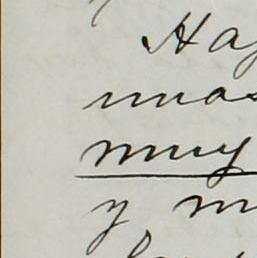 Ha
unas
muy
y m